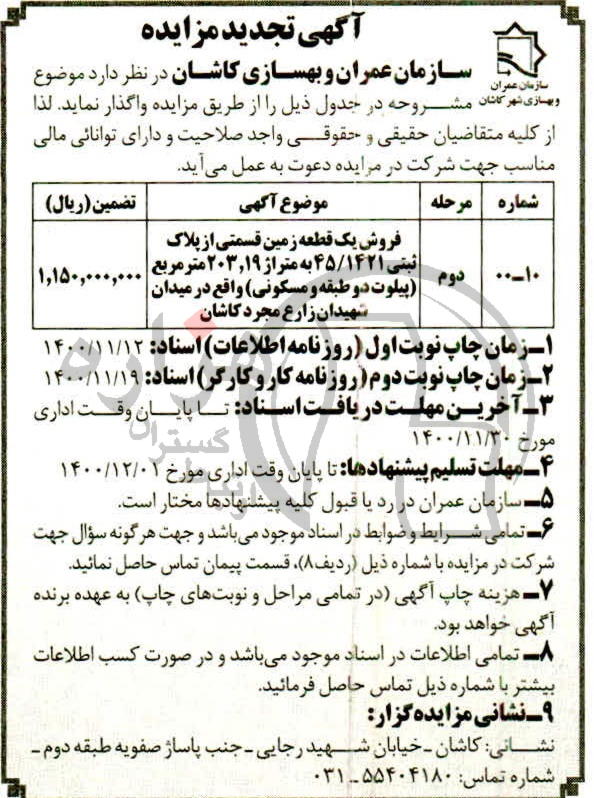 آگهی تجدید مزایده
سازمان عمران
و بهسازی شهر کاشان
سازمان عمران و بهسازی کاشان در نظر دارد موضوع
مشروحه در جدول ذیل را از طریق مزایده واگذار نماید. لذا
از کلیه متقاضیان حقیقی و حقوقی واجد صلاحیت و دارای توانائی مالی
مناسب جهت شرکت در مزایده دعوت به عمل می‌آید.
شماره مرحله موضوع آگهی تضمین (ریال)
۱۰ــ۰۰ دوم فروش یک قطعه زمین قسمتی از پلاک
ثبتی ۴۵/۱۴۲۱ به متراژ ۲۰۳,۱۹ مترمربع
(پیلوت دو طبقه و مسکونی) واقع در میدان
شهیدان زارع مجرد کاشان ۱,۱۵۰,۰۰۰,۰۰۰
۱ــ زمان چاپ نوبت اول (روزنامه اطلاعات) اسناد: ۱۴۰۰/۱۱/۱۲
۲ــ زمان چاپ نوبت دوم (روزنامه کار و کارگر) اسناد: ۱۴۰۰/۱۱/۱۹
۳ــ آخرین مهلت دریافت اسناد: تا پایان وقت اداری
مورخ ۱۴۰۰/۱۱/۳۰
۴ــ مهلت تسلیم پیشنهادها: تا پایان وقت اداری مورخ ۱۴۰۰/۱۲/۰۱
۵ــ سازمان عمران در رد یا قبول کلیه پیشنهادها مختار است.
۶ــ تمامی شرایط و ضوابط در اسناد موجود می‌باشد و جهت هرگونه سؤال جهت
شرکت در مزایده با شماره ذیل (ردیف ۸)، قسمت پیمان تماس حاصل نمائید.
۷ــ هزینه چاپ آگهی (در تمامی مراحل و نوبت‌های چاپ) به عهده برنده
آگهی خواهد بود.
۸ــ تمامی اطلاعات در اسناد موجود می‌باشد و در صورت کسب اطلاعات
بیشتر با شماره ذیل تماس حاصل فرمائید.
۹ــ نشانی مزایده گزار:
نشانی: کاشان ــ خیابان شهید رجایی ــ جنب پاساژ صفویه طبقه دوم ــ
شماره تماس: ۵۵۴۰۴۱۸۰ ــ ۰۳۱
هزاره
گستران